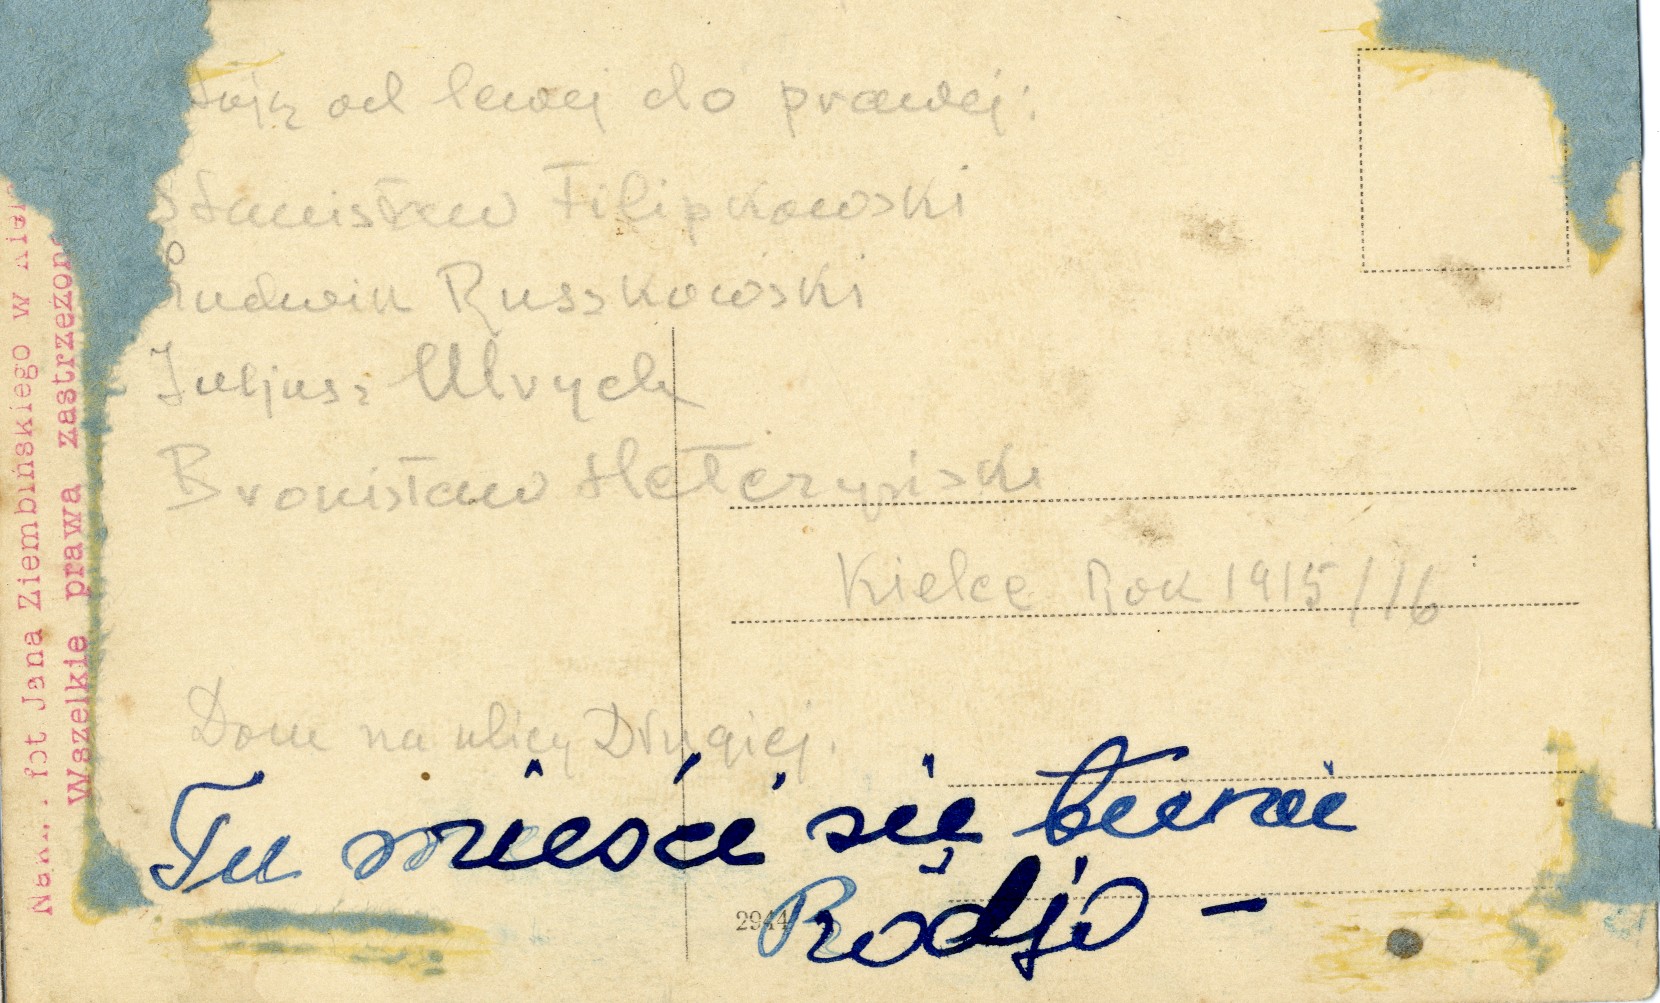 od lewej do prawej:
Stanisław Filipkowski
Ludwik Russkowski
Juljusz Ulrych
Bronisław
Kielce Rok 1915/16
Dom na ulicy Drugiej.
Tu mieści się teraz
Radjo -
2944
fot Jana Ziembińskiego w
Wszelkie prawa zastrzeżon